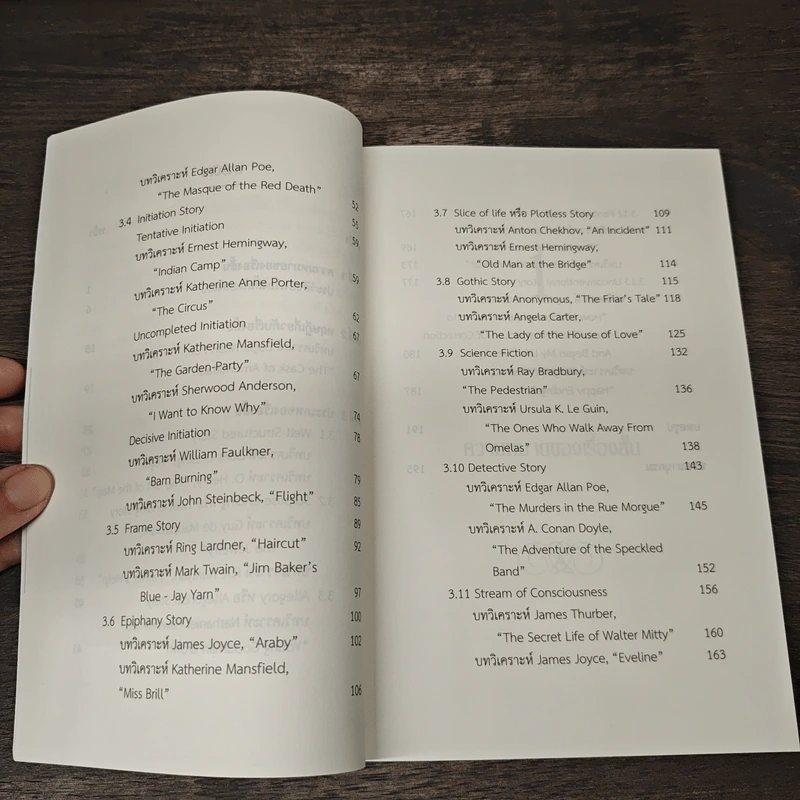 บทวิเคราะห์ Edgar Allan Poe,
"The Masque of the Red Death" 52
3.4 Initiation Story 55
Tentative Initiation 59
บทวิเคราะห์ Ernest Hemingway,
"Indian Camp" 59
บทวิเคราะห์ Katherine Anne Porter,
"The Circus" 62
Uncompleted Initiation 67
บทวิเคราะห์ Katherine Mansfield,
"The Garden-Party" 67
บทวิเคราะห์ Sherwood Anderson,
"I Want to Know Why" 74
Decisive Initiation 78
บทวิเคราะห์ William Faulkner,
"Barn Burning" 79
บทวิเคราะห์ John Steinbeck, "Flight" 85
3.5 Frame Story 89
บทวิเคราะห์ Ring Lardner, "Haircut" 92
บทวิเคราะห์ Mark Twain, "Jim Baker's
Blue - Jay Yarn" 97
3.6 Epiphany Story 100
บทวิเคราะห์ James Joyce, "Araby" 102
บทวิเคราะห์ Katherine Mansfield,
"Miss Brill" 106
3.7 Slice of life หรือ Plotless Story 109
บทวิเคราะห์ Anton Chekhov, "An Incident" 111
บทวิเคราะห์ Ernest Hemingway,
"Old Man at the Bridge" 114
3.8 Gothic Story 115
บทวิเคราะห์ Anonymous, "The Friar's Tale" 118
บทวิเคราะห์ Angela Carter,
"The Lady of the House of Love" 125
3.9 Science Fiction 132
บทวิเคราะห์ Ray Bradbury,
"The Pedestrian" 136
บทวิเคราะห์ Ursula K. Le Guin,
"The Ones Who Walk Away From
Omelas" 138
3.10 Detective Story 143
บทวิเคราะห์ Edgar Allan Poe,
"The Murders in the Rue Morgue" 145
บทวิเคราะห์ A. Conan Doyle,
"The Adventure of the Speckled
Band" 152
3.11 Stream of Consciousness 156
บทวิเคราะห์ James Thurber,
"The Secret Life of Walter Mitty" 160
บทวิเคราะห์ James Joyce, "Eveline" 163